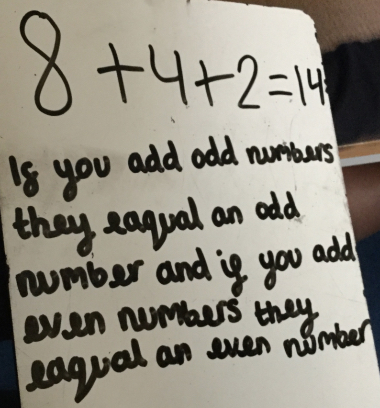 8 + 4 + 2 = 14
If you add odd numbers
they eaqual an odd
number and if you add
even numbers they
eaqual an even number